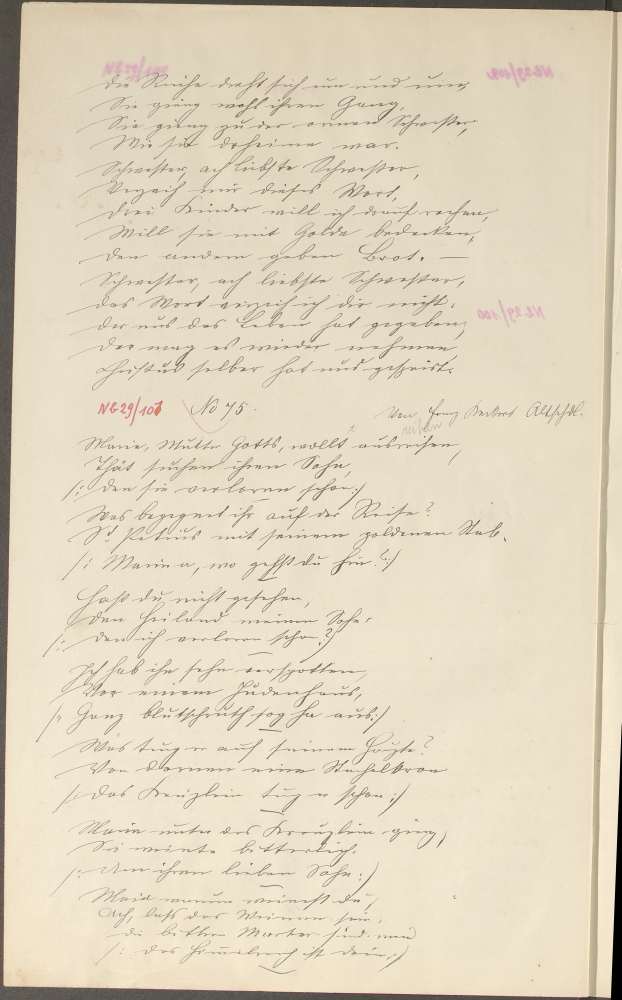 Die Reihe dreht sich um und um,
Sie ging wohl ihren Gang,
Sie ging zu der armen Schwester,
Wie sie daheime war.
Schwester, ach liebste Schwester,
Verzeih mir dieses Wort,
drei Kinder will ich darauf
Will sie mit Golde bedecken,
den andern geben Brot. —
Schwester, ach liebste Schwester,
das Wort verzeih ich dir nicht.
der uns das Leben hat gegeben,
der mag es wieder nehmen
Christus selber hat uns gespeist.
NG29/100
NG29/101 No 75. Von Franz
Maria, Mutter Gotts, wollt ausreisen,
Thät suchen ihren Sohn,
/: den sie verloren schon :/
Was begegnet ihr auf der Reise?
St. Petrus mit seinem goldenen Stab.
/: Maria, wo gehst du hin? :/
Hast du nicht gesehen,
den Heiland meinen Sohn,
/: den ich verloren schon? :/
Ich hab ihn sehn verspotten,
Vor einem Judenhaus,
/: Ganz blutschruth sog he aus :/
Was trug er auf seinem Haupte?
Von Dornen eine Stachelkron
/: das Kreuzlein trug er schon :/
Maria unter das Kreuzlein ging,
Sie weinte bitterlich.
/: Um ihren lieben Sohn :/
Maid warum weinest du,
Ach, lass das Weinen sein,
die bittern Marter sind mein
/: das Himmelreich ist dein :/